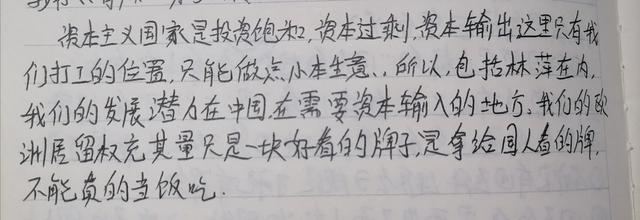 资本主义国家是投资饱和,资本过剩,资本输出这里只有我
们打工的位置,只能做点小本生意、所以,包括林萍在内,
我们的发展潜力在中国在需要资本输入的地方。我们的欧
洲居留权充其量只是一块好看的牌子,是拿给国人看的牌,
不能真的当饭吃.